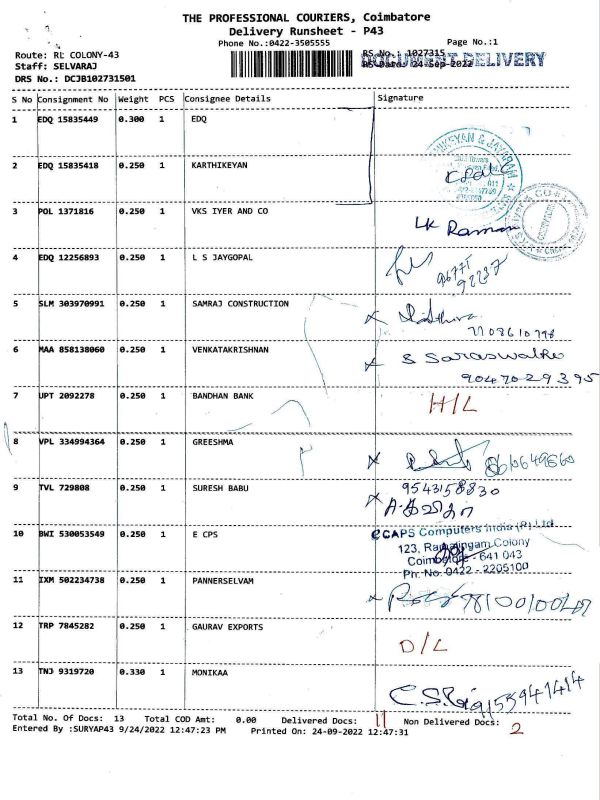 THE PROFESSIONAL COURIERS, Coimbatore
Delivery Runsheet - P43
Phone No.:0422-3505555 Page No.:1
Route: RL COLONY-43 RS No. 1027315
Staff: SELVARAJ RS Date: 24-Sep-2022
DOCUMENT DELIVERY
DRS No.: DCJB102731501
S No Consignment No Weight PCS Consignee Details Signature
1 EDQ 15835449 0.300 1 EDQ
2 EDQ 15835418 0.250 1 KARTHIKEYAN
3 POL 1371816 0.250 1 VKS IYER AND CO LK Raman
4 EDQ 12256893 0.250 1 L S JAYGOPAL
5 SLM 303970991 0.250 1 SAMRAJ CONSTRUCTION
7708610798
6 MAA 858138060 0.250 1 VENKATAKRISHNAN
9047029395
7 UPT 2092278 0.250 1 BANDHAN BANK H/L
8 VPL 334994364 0.250 1 GREESHMA
9 TVL 729808 0.250 1 SURESH BABU 9543158830
10 BWI 530053549 0.250 1 E CPS eCAPS Computers India (P) Ltd.
123, Ramalingam Colony
Coimbatore - 641 043
Ph: No. 0422 - 2205100
11 IXM 502234738 0.250 1 PANNERSELVAM
12 TRP 7845282 0.250 1 GAURAV EXPORTS D/L
13 TNJ 9319720 0.330 1 MONIKAA
Total No. Of Docs: 13 Total COD Amt: 0.00 Delivered Docs: 11 Non Delivered Docs: 2
Entered By :SURYAP43 9/24/2022 12:47:23 PM Printed On: 24-09-2022 12:47:31